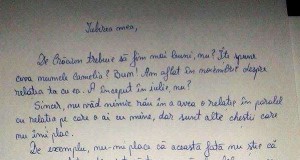 Iubirea mea,
De Crăciun trebuie să fim mai buni, nu? Îți spune
ceva numele Camelia? Bun! Am aflat în noiembrie despre
relația ta cu ea. A început în iulie, nu?
Sincer, nu văd nimic rău în a avea o relație în paralel
cu relația pe care o ai cu mine, dar sunt alte chestii care
nu îmi plac.
De exemplu, nu-mi place că această fată nu știe că